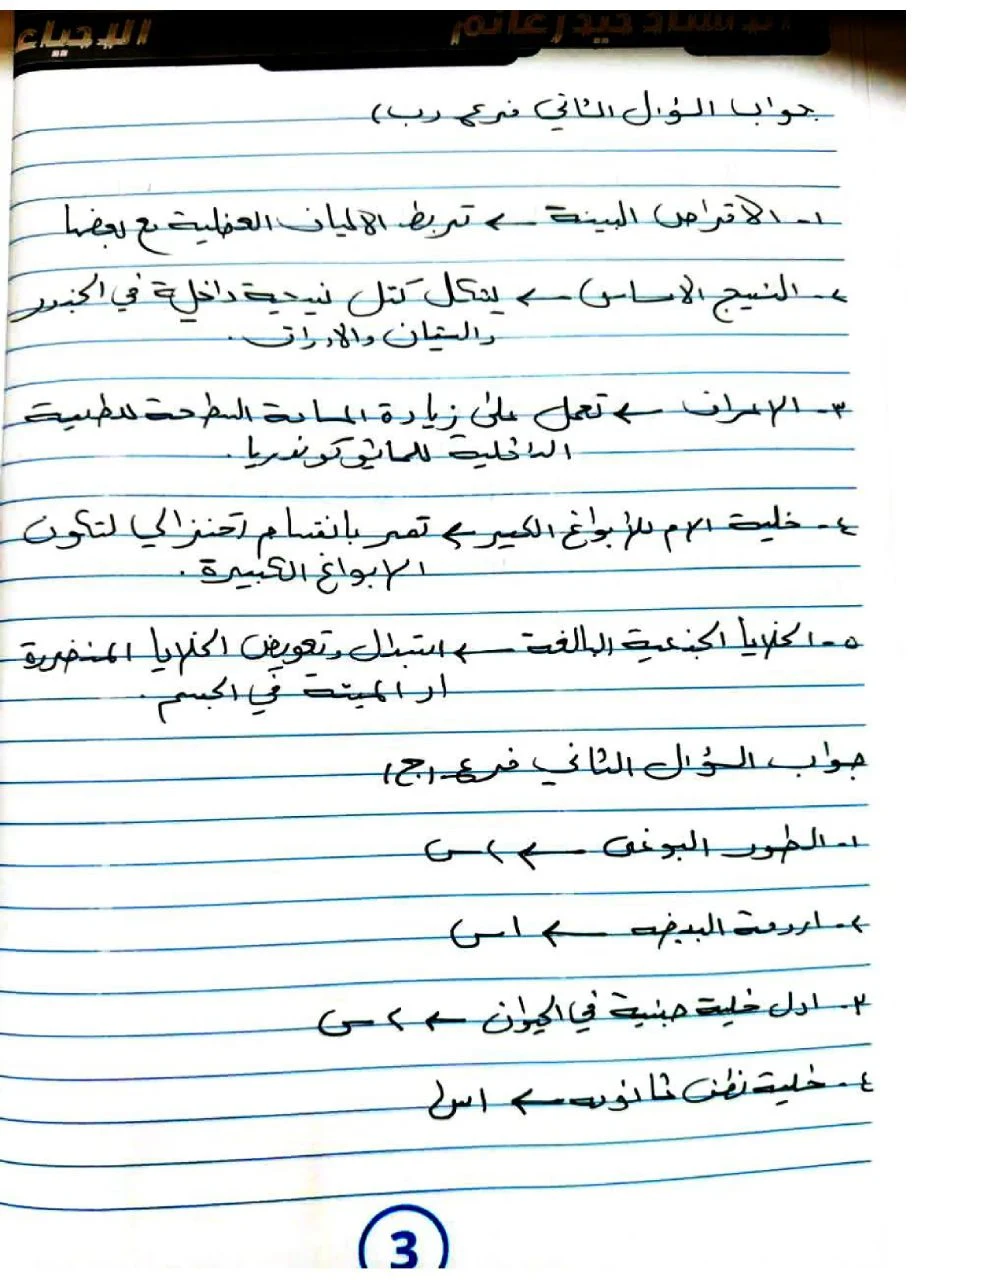 الاستاذ حيدر غانم الاحياء
جواب السؤال الثاني فرع (ب)
١- الاقراص البينية ← تربط الالياف العضلية مع بعضها
٢- النسيج الاساس ← يشكل كتل نسيجية داخلية في الجذور
والسيقان والاوراق.
٣- الاعراف ← تعمل على زيادة المساحة السطحية للطبية
الداخلية للمايتوكوندريا.
٤- خلية الام للأبواغ الكبير ← تمر بانقسام اختزالي لتكون
الابواغ الكبيرة.
٥- الخلايا الجذعية البالغة ← استبدال وتعويض الخلايا المتضررة
او الميتة في الجسم.
جواب السؤال الثاني فرع (ج)
١- الطور البوغي ← ٢س
٢- ارومة البيضه ← ١س
٣- اول خلية جنينية في الحيوان ← ٢س
٤- خلية نطف ثانويه ← ١س
3